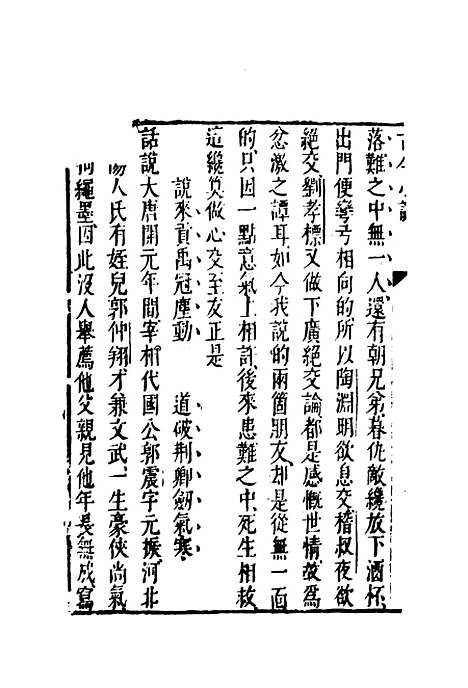 古今小說
落難之中無一人還有朝兄弟暮仇敵纔放下酒杯
出門便彎弓相向的所以陶淵明欲息交嵇叔夜欲
絕交劉孝標又做下廣絕交論都是感慨世情故爲
忿激之譚耳如今我說的兩箇朋友却是從無一面
的只因一點意氣上相許後來患難之中死生相救
這纔筭做心交至友正是
說來貢禹冠塵動　道破荆卿劒氣寒
話說大唐開元年間宰相代國公郭震字元振河北
陽人氏有姪兒郭仲翔才兼文武一生豪俠尚氣
拘繩墨因此沒人舉薦他父親見他年長無成寫